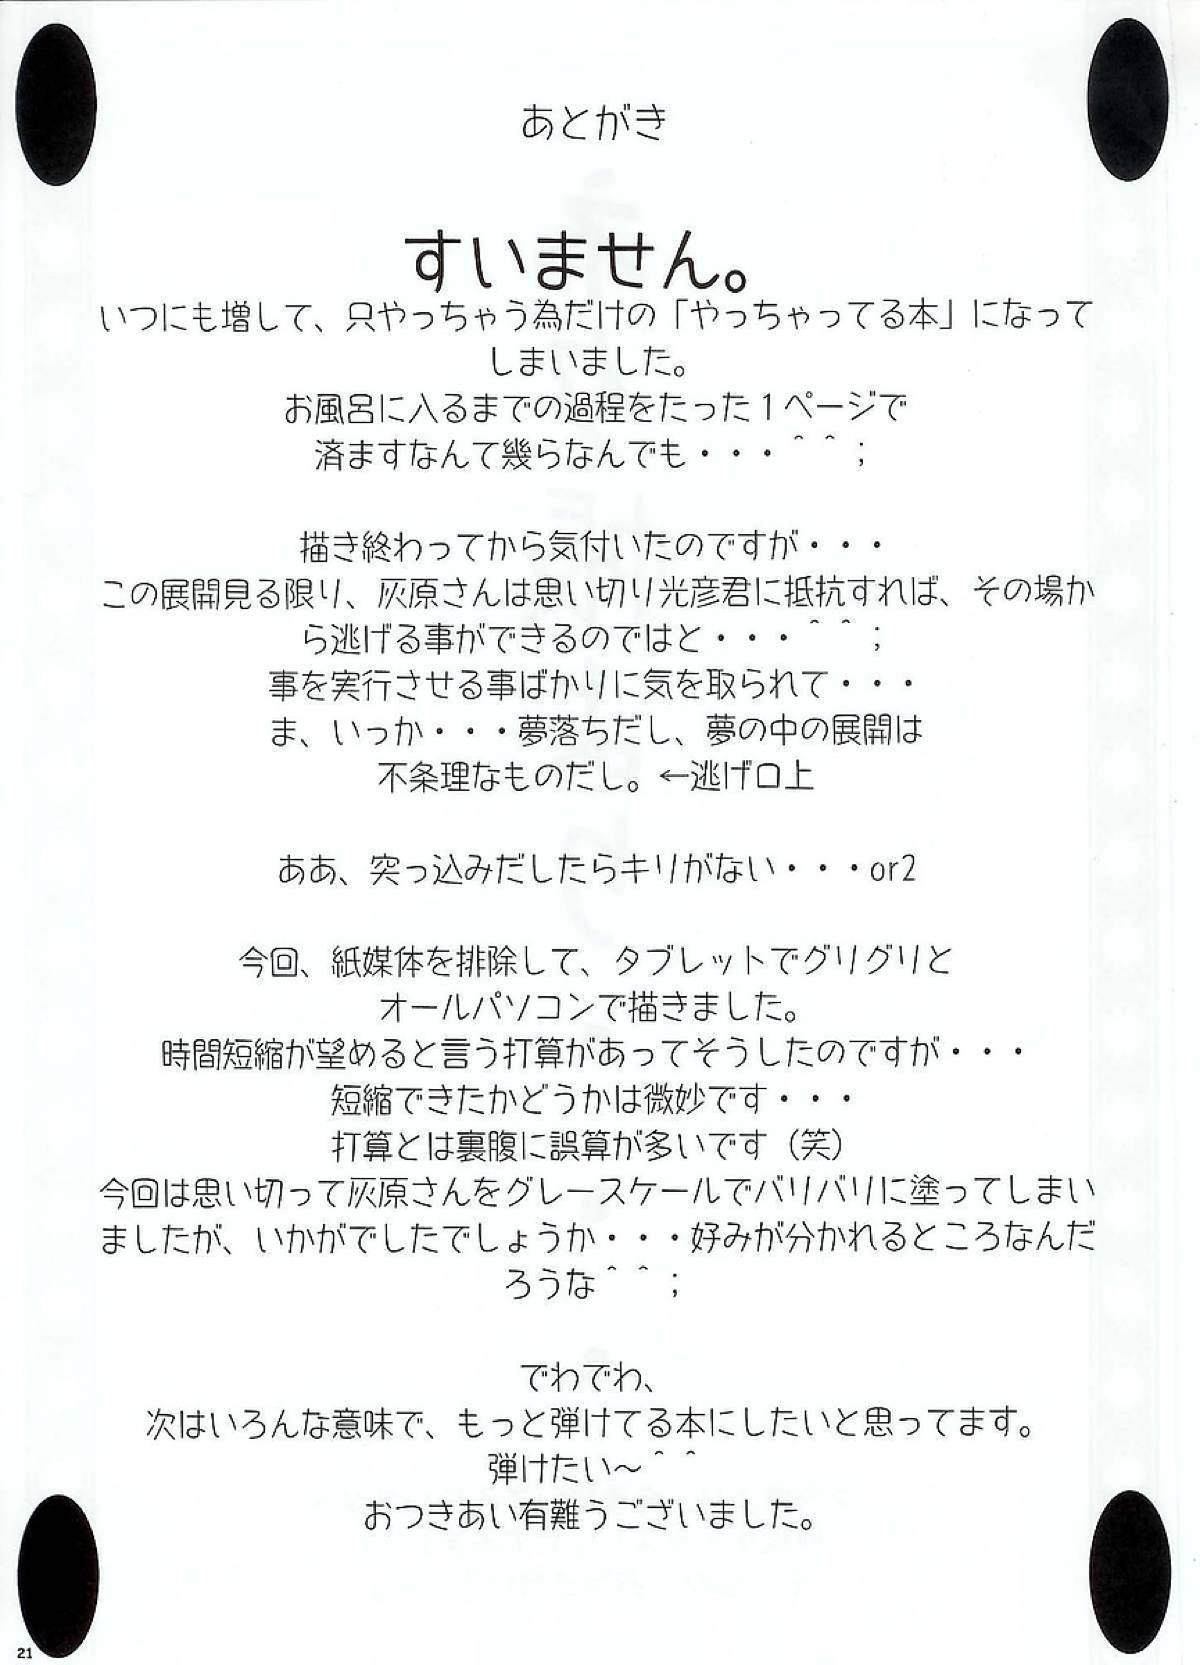 あとがき
すいません。
いつにも増して、只やっちゃう為だけの「やっちゃってる本」になって
しまいました。
お風呂に入るまでの過程をたった1ページで
済ますなんて幾らなんでも・・・＾＾；
描き終わってから気付いたのですが・・・
この展開見る限り、灰原さんは思い切り光彦君に抵抗すれば、その場か
ら逃げる事ができるのではと・・・＾＾；
事を実行させる事ばかりに気を取られて・・・
ま、いっか・・・夢落ちだし、夢の中の展開は
不条理なものだし。←逃げ口上
ああ、突っ込みだしたらキリがない・・・or2
今回、紙媒体を排除して、タブレットでグリグリと
オールパソコンで描きました。
時間短縮が望めると言う打算があってそうしたのですが・・・
短縮できたかどうかは微妙です・・・
打算とは裏腹に誤算が多いです（笑）
今回は思い切って灰原さんをグレースケールでバリバリに塗ってしまい
ましたが、いかがでしたでしょうか・・・好みが分かれるところなんだ
ろうな＾＾；
でわでわ、
次はいろんな意味で、もっと弾けてる本にしたいと思ってます。
弾けたい～＾＾
おつきあい有難うございました。
21